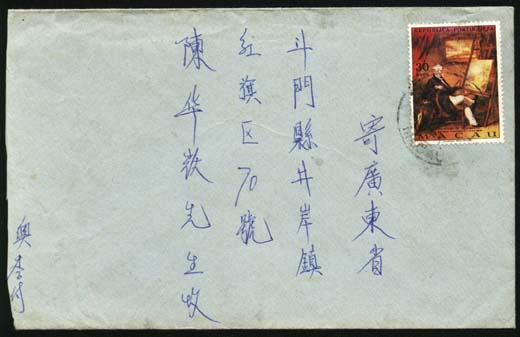 寄廣東省
斗門縣井岸鎮
紅旗区70號
陳华歡先生收
REPUBLICA PORTUGUESA
30
MACAU